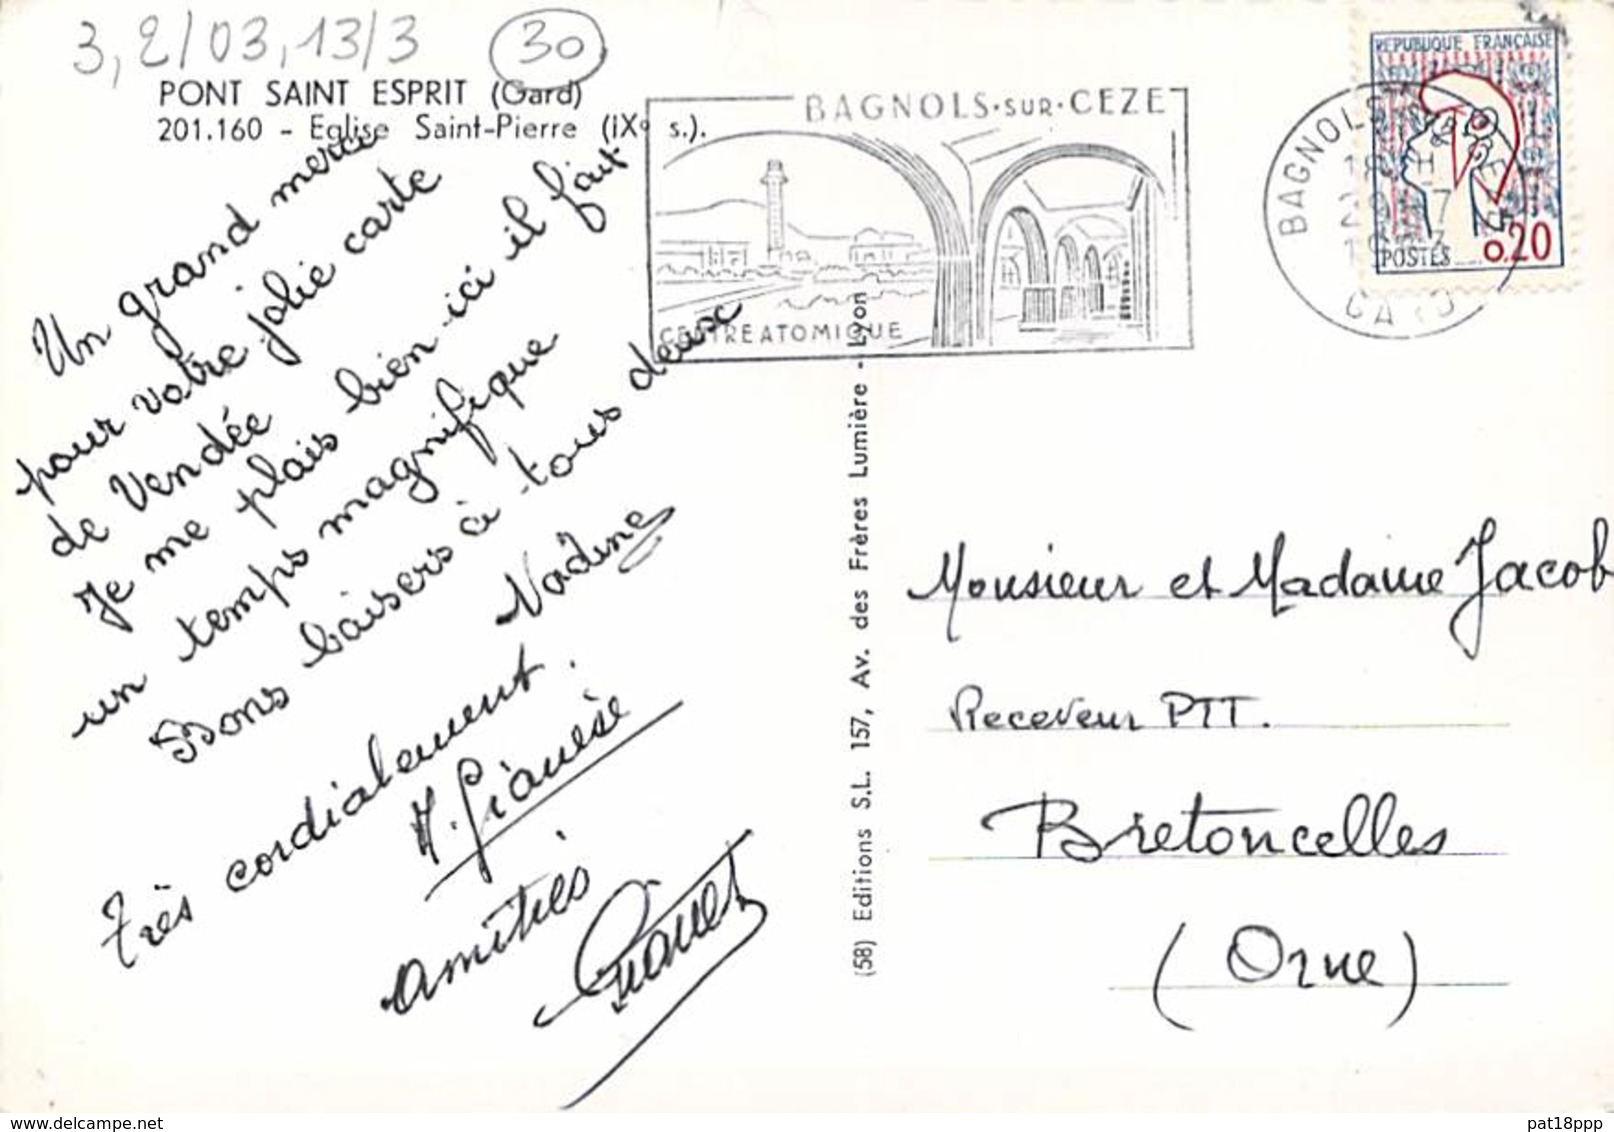 3,2/03,13/3
30
PONT SAINT ESPRIT (Gard)
201.160 - Eglise Saint-Pierre (IXe s.).
Un grand merci
pour votre jolie carte
de Vendée
Je me plais bien ici il fait
un temps magnifique
Bons baisers à tous deux
Nadine
Très cordialement.
amitiés
(58) Editions S.L. 157, Av. des Frères Lumière - Lyon
BAGNOLS·SUR·CEZE
CENTRE ATOMIQUE
BAGNOLS
GARD
REPUBLIQUE FRANÇAISE
POSTES 0.20
Monsieur et Madame Jacob
Receveur PTT.
Bretoncelles
(Orne)
delcampe.net
pat18ppp